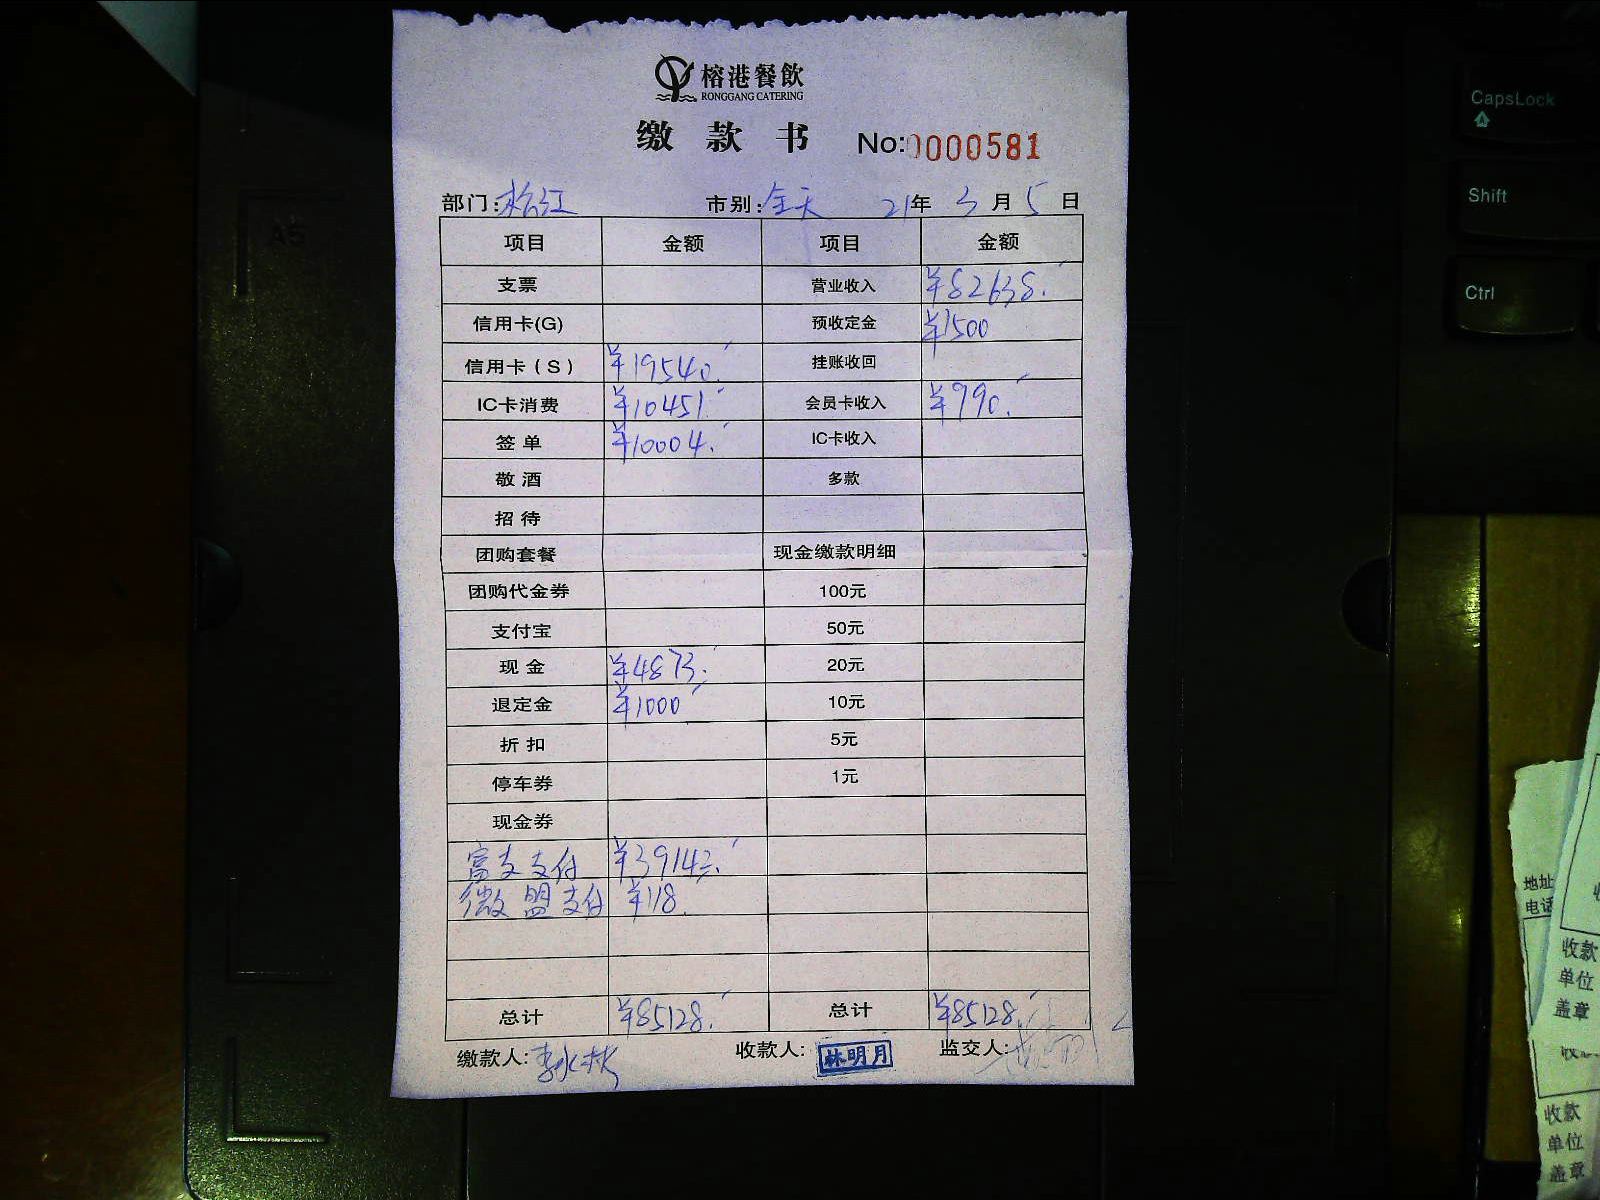 榕港餐飲
RONGGANG CATERING
缴款书 No:0000581
部门: 市别:全天 21年3月5日
项目 金额 项目 金额
支票 营业收入 ¥82638.
信用卡(G) 预收定金 ¥1500
信用卡(S) ¥19540. 挂账收回
IC卡消费 ¥10451. 会员卡收入 ¥990.
签单 ¥10004. IC卡收入
敬酒 多款
招待
团购套餐 现金缴款明细
团购代金券 100元
支付宝 50元
现金 ¥4873. 20元
退定金 ¥1000 10元
折扣 5元
停车券 1元
现金券
富友支付 ¥39142.
微盟支付 ¥118.
总计 ¥85128. 总计 ¥85128.
缴款人: 收款人: 林明月 监交人:
CapsLock
Shift
Ctrl
地址
电话
收款
单位
盖章
收款
单位
盖章